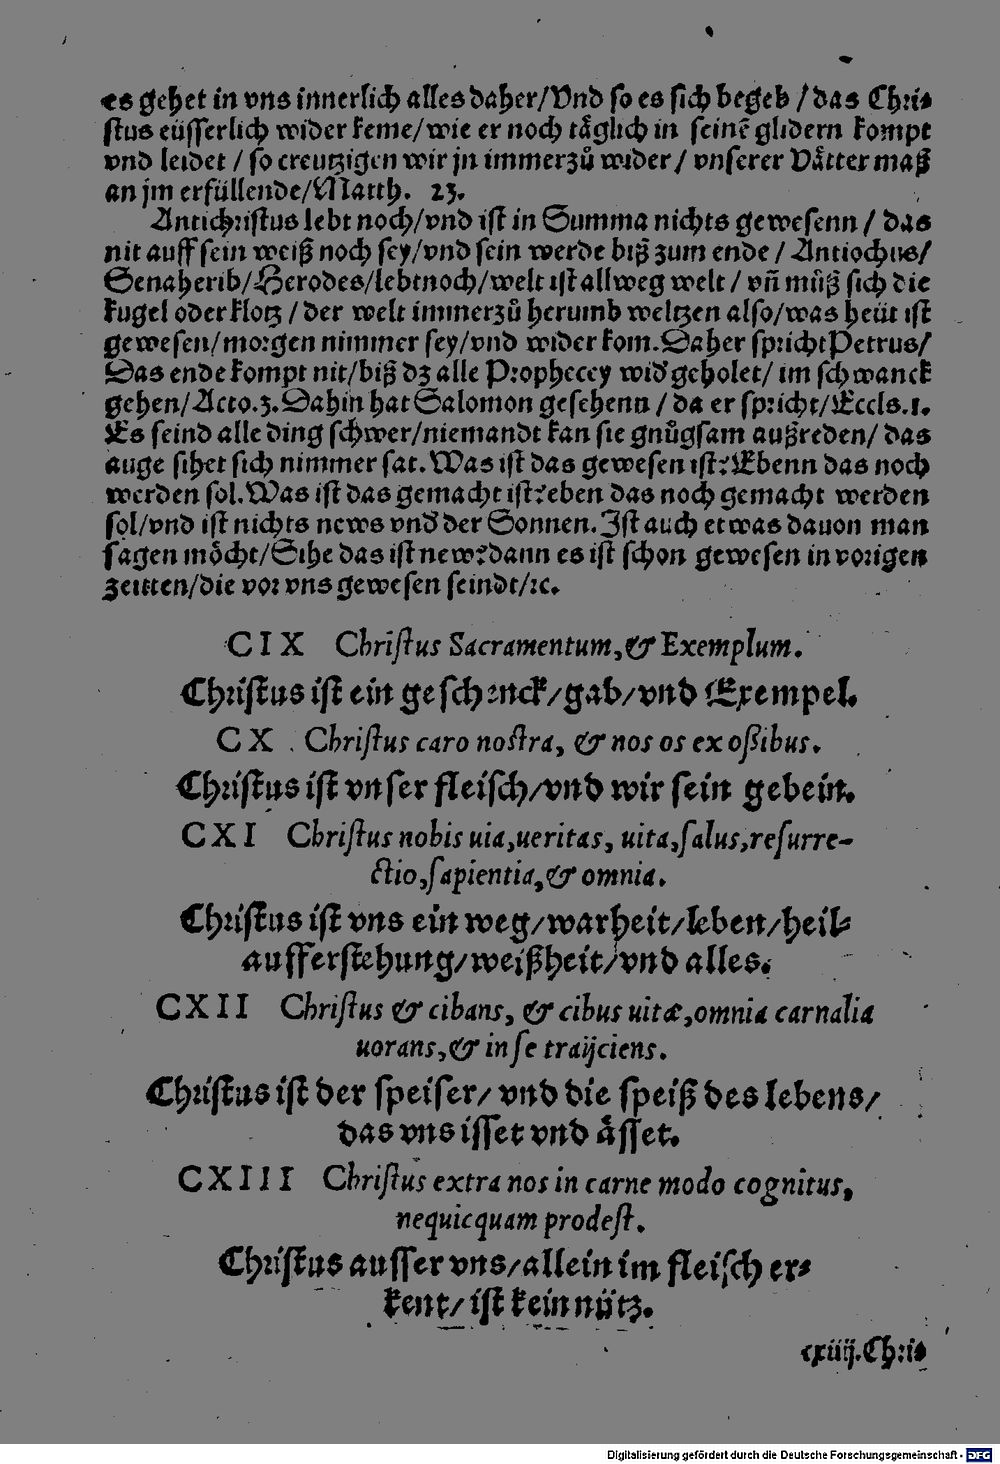 es gehet in vns innerlich alles daher/Vnd so es sich begeb / das Chri⸗
stus eüsserlich wider keme/wie er noch täglich in seinē glidern kompt
vnd leidet / so creutzigen wir jn immerzů wider / vnserer Vätter maß
an jm erfüllende/Matth. 23.
Antichristus lebt noch/vnd ist in Summa nichts gewesenn / das
nit auff sein weiß noch sey/vnd sein werde biß zum ende / Antiochus/
Senaherib/Herodes/lebt noch/welt ist allweg welt / vñ můß sich die
kugel oder klotz / der welt immerzů herumb weltzen also/was heüt ist
gewesen/morgen nimmer sey/vnd wider kom. Daher spricht Petrus/
Das ende kompt nit/biß dz alle Prophecey wid̕geholet/ im schwanck
gehen/Acto.3. Dahin hat Salomon gesehenn / da er spricht/Eccls.1.
Es seind alle ding schwer/niemandt kan sie gnůgsam außreden/ das
auge sihet sich nimmer sat. Was ist das gewesen ist? Ebenn das noch
werden sol. Was ist das gemacht ist? eben das noch gemacht werden
sol/vnd ist nichts news vnd̕ der Sonnen. Ist auch etwas dauon man
sagen möcht/Sihe das ist new? dann es ist schon gewesen in vorigen
zeitten/die vor vns gewesen seindt/ꝛc.
CIX Christus Sacramentum, & Exemplum.
Christus ist ein geschenck/gab/vnd Exempel.
CX . Christus caro nostra, & nos os ex oßibus.
Christus ist vnser fleisch/vnd wir sein gebein.
CXI Christus nobis uia, ueritas, uita, salus, resurre-
ctio, sapientia, & omnia.
Christus ist vns ein weg/warheit/leben/heil⸗
aufferstehung/weißheit/vnd alles.
CXII Christus & cibans, & cibus uitæ, omnia carnalia
uorans, & in se traijciens.
Christus ist der speiser/ vnd die speiß des lebens/
das vns isset vnd ässet.
CXIII Christus extra nos in carne modo cognitus,
nequicquam prodest.
Christus ausser vns/allein im fleisch er⸗
kent/ ist kein nütz.
cxiiij. Chri⸗
Digitalisierung gefördert durch die Deutsche Forschungsgemeinschaft - DFG